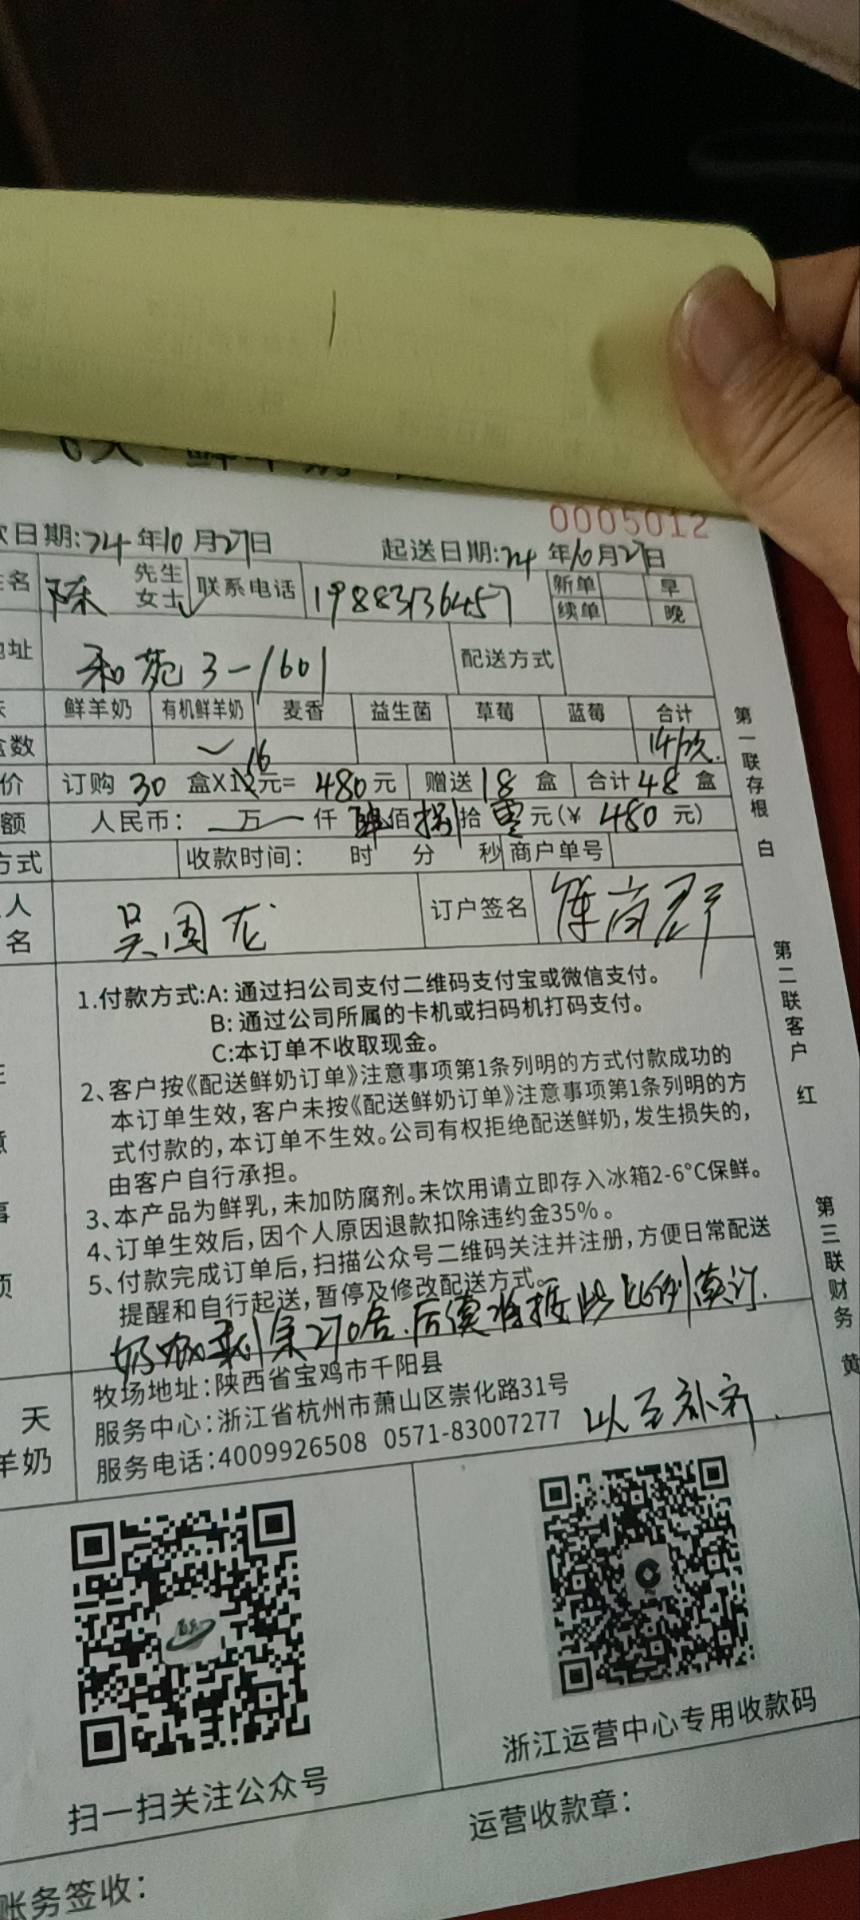 0005012
日期:24年10月27日 起送日期:24年10月27日
名 陈 先生 女士✓ 联系电话 19883136457 新单 早
续单 晚
地址 和苑3-1601 配送方式
鲜羊奶 有机鲜羊奶 麦香 益生菌 草莓 蓝莓 合计
盒数 ✓ 1瓶/次.
价 订购30盒X16元=480元 赠送18盒 合计48盒
额 人民币: 一万一仟肆佰捌拾零元(¥ 480元)
方式 收款时间: 时 分 秒 商户单号
人
名 吴国龙 订户签名
1.付款方式:A: 通过扫公司支付二维码支付宝或微信支付。
B: 通过公司所属的卡机或扫码机打码支付。
C:本订单不收取现金。
2、客户按《配送鲜奶订单》注意事项第1条列明的方式付款成功的
本订单生效,客户未按《配送鲜奶订单》注意事项第1条列明的方
式付款的,本订单不生效。公司有权拒绝配送鲜奶,发生损失的,
由客户自行承担。
3、本产品为鲜乳,未加防腐剂。未饮用请立即存入冰箱2-6°C保鲜。
4、订单生效后,因个人原因退款扣除违约金35%。
5、付款完成订单后,扫描公众号二维码关注并注册,方便日常配送
提醒和自行起送,暂停及修改配送方式。
剩余270盒.后续将按此比例续订.
以至补齐.
牧场地址:陕西省宝鸡市千阳县
天 服务中心:浙江省杭州市萧山区崇化路31号
羊奶 服务电话:4009926508 0571-83007277
扫一扫关注公众号
浙江运营中心专用收款码
运营收款章:
账务签收:
第一联存根 白
第二联客户 红
第三联财务 黄